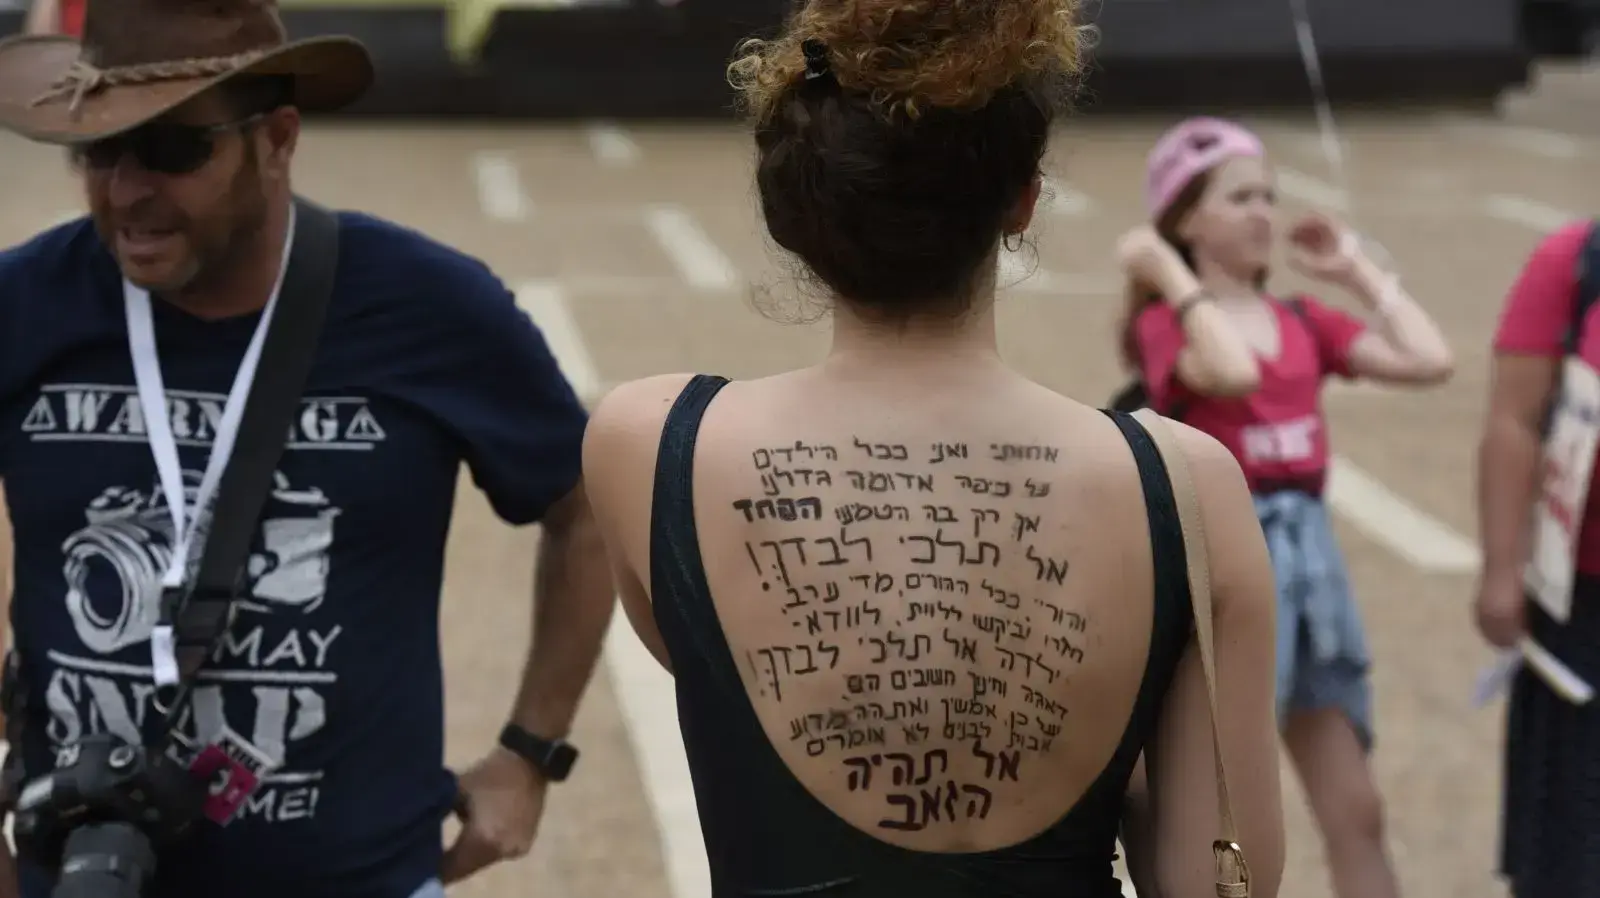 WARNING
MAY
SNAP
ME!
אחותי ואני ככל הילדים
על כיפה אדומה גדלנו
אך רק בה הטמענו הפחד
אל תלכי לבדך!
והורי ככל ההורים, מדי ערב
חזרו וביקשו ללוות, לוודא-
ילדה אל תלכי לבדך!
דאגה וחינוך חשובים הם
על כן, אמשיך ואתהה מדוע
אבות לבנים לא אומרים
אל תהיה
הזאב